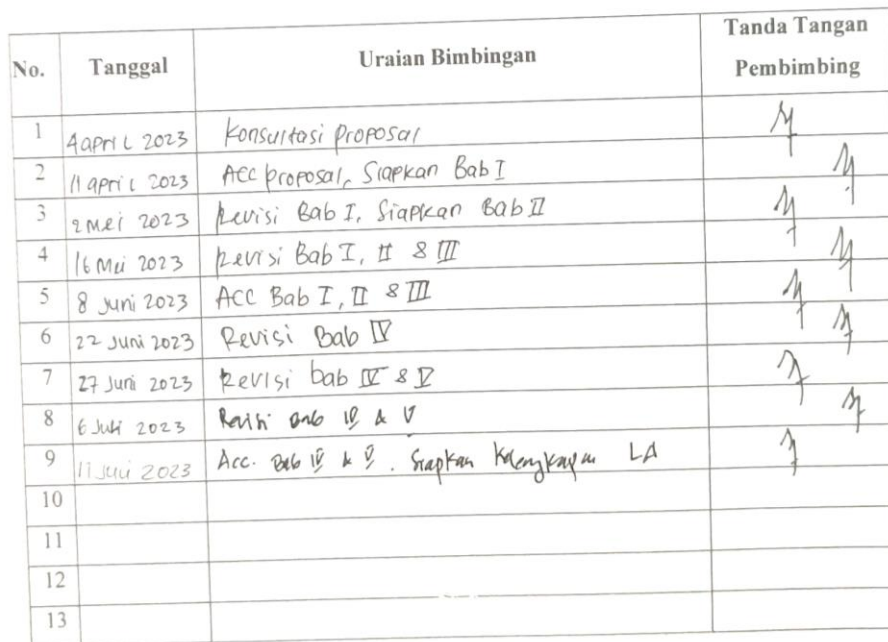 No. Tanggal Uraian Bimbingan Tanda Tangan Pembimbing
1 4 april 2023 Konsultasi Proposal
2 11 april 2023 Acc proposal, Siapkan Bab I
3 2 Mei 2023 Revisi Bab I, Siapkan Bab II
4 16 Mei 2023 Revisi Bab I, II & III
5 8 Juni 2023 ACC Bab I, II & III
6 22 Juni 2023 Revisi Bab IV
7 27 Juni 2023 Revisi bab IV & V
8 6 Juli 2023 Revisi Bab IV & V
9 11 Juli 2023 Acc. Bab IV & V. Siapkan Kelengkapan LA
10
11
12
13